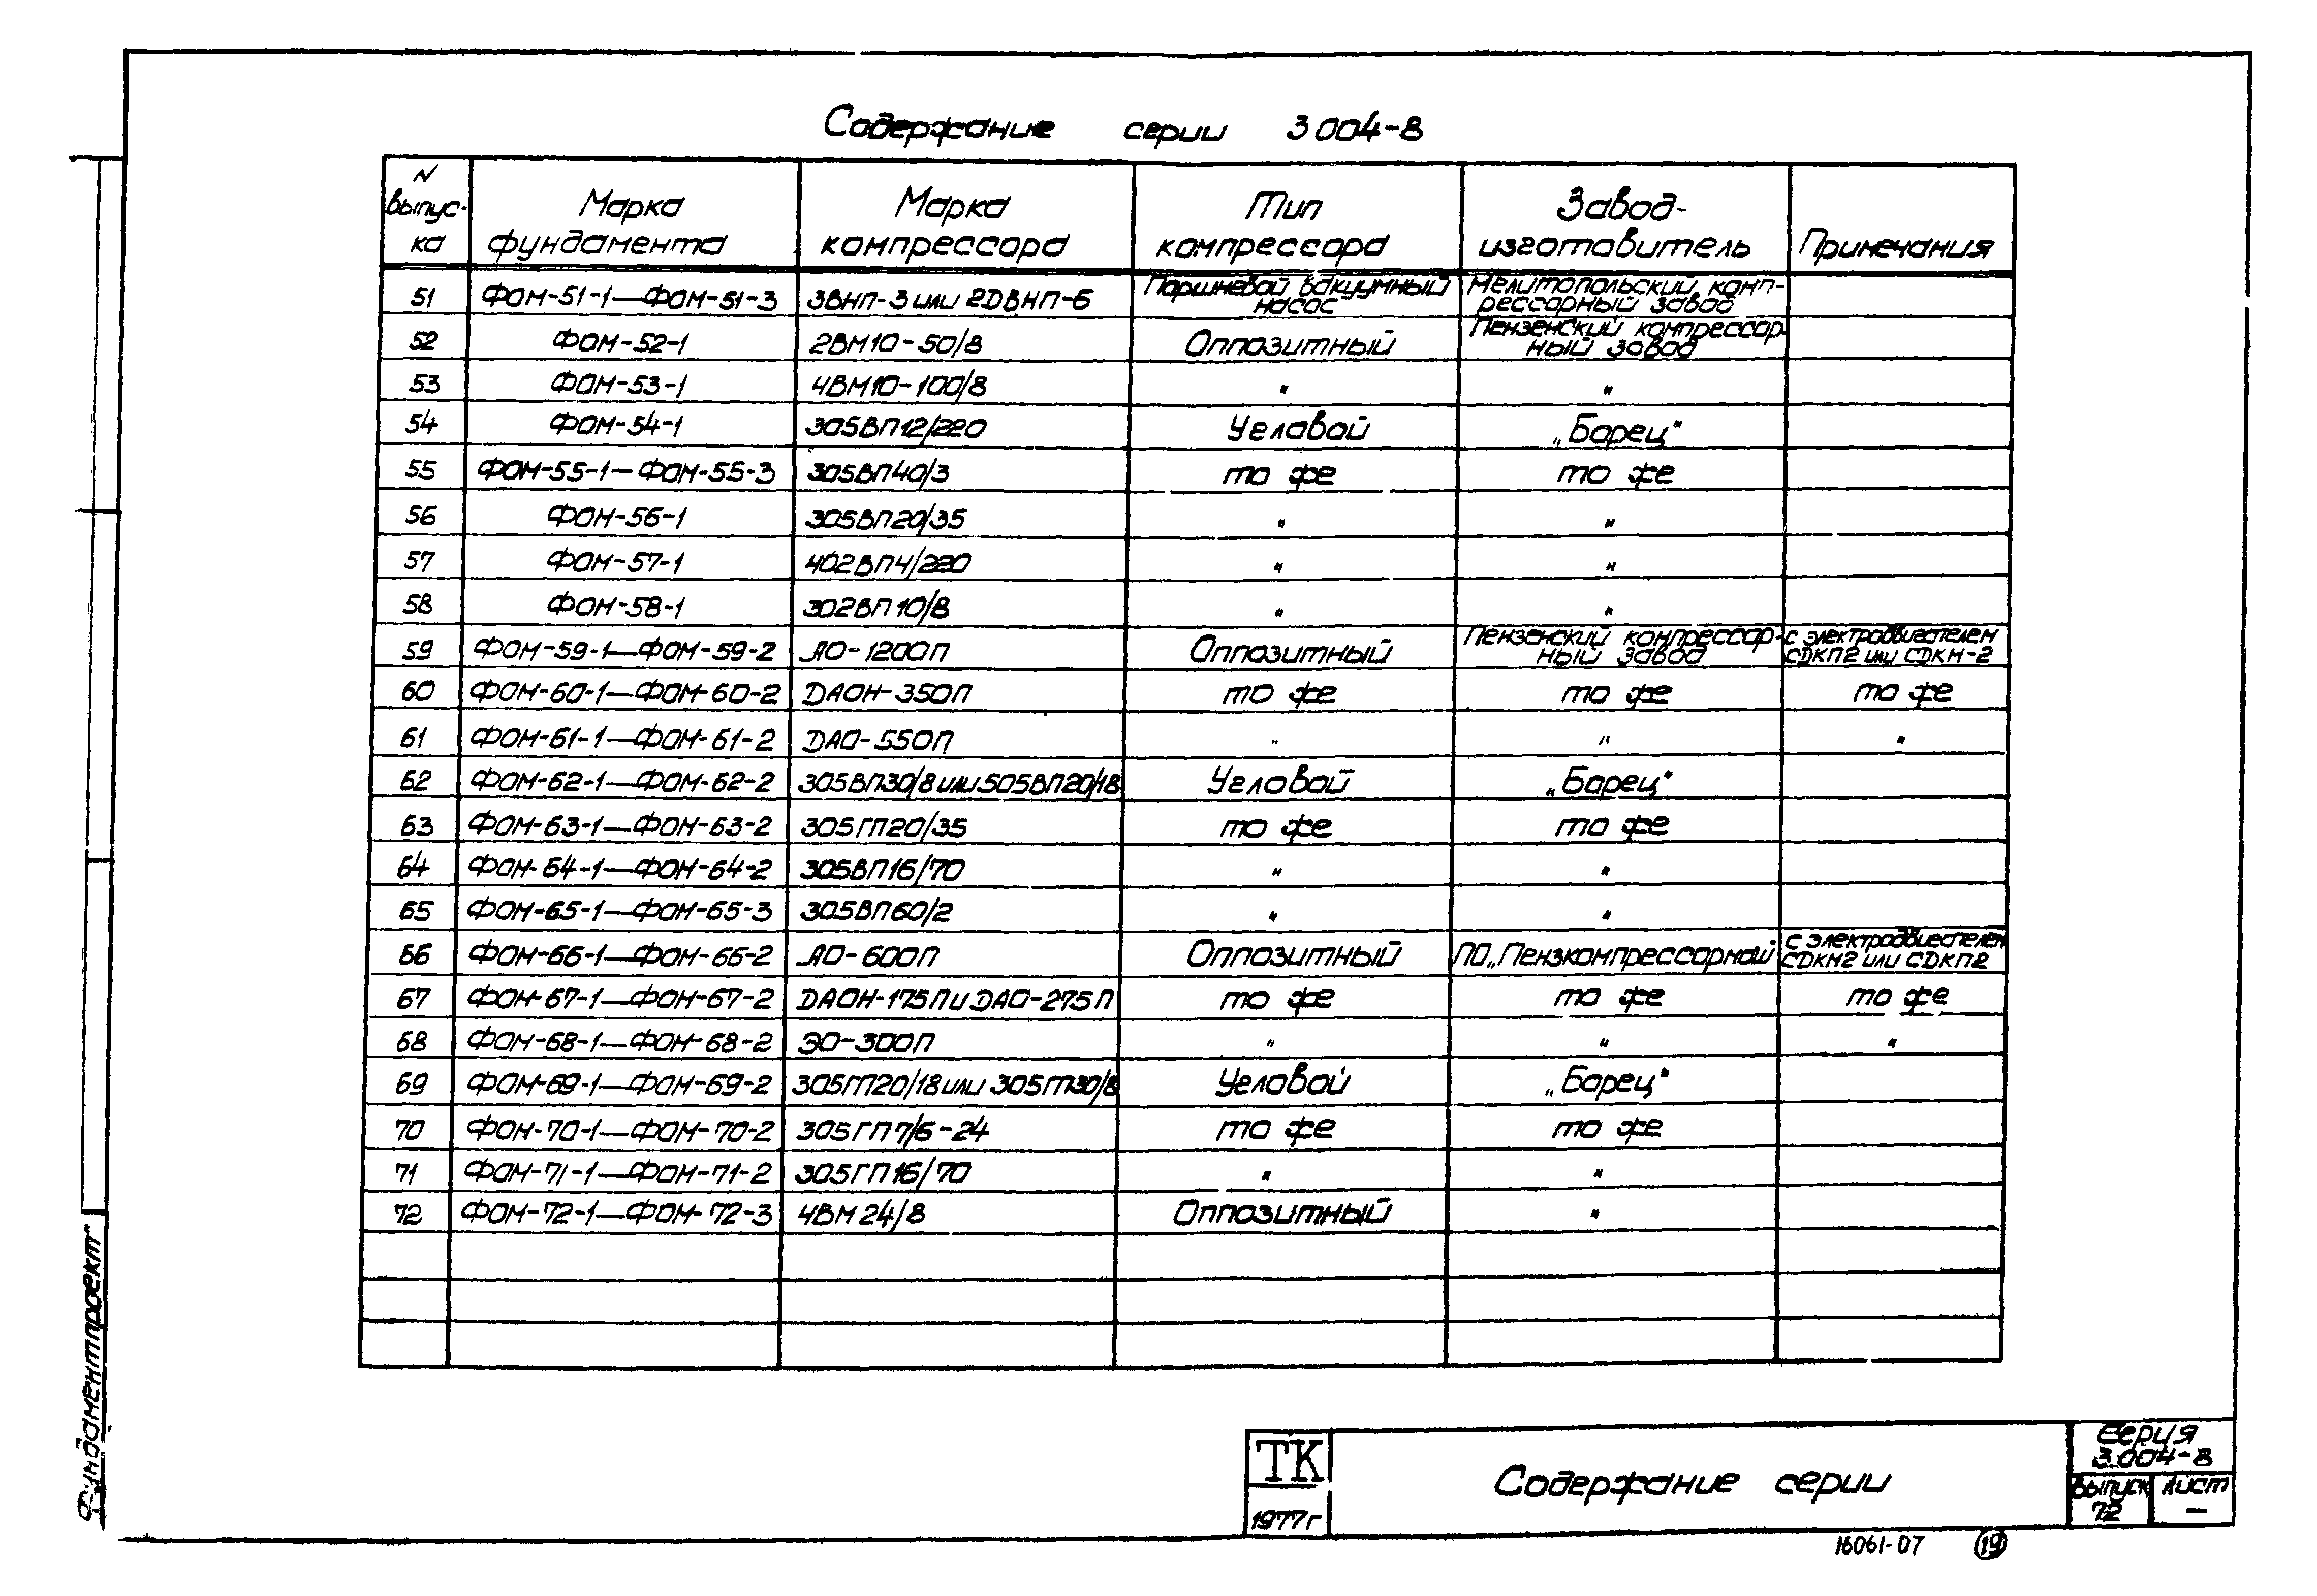 Содержание серии 3 004-8
N выпус-ка Марка фундамента Марка компрессора Тип компрессора Завод-изготовитель Примечания
51 ФОМ-51-1—ФОМ-51-3 3ВНП-3 или 2DВНП-6 Поршневой вакуумный насос Мелитопольский комп-рессорный завод
52 ФОМ-52-1 2ВМ10-50/8 Оппозитный Пензенский компрессор-ный завод
53 ФОМ-53-1 4ВМ10-100/8 " "
54 ФОМ-54-1 305ВП12/220 Угловой „Борец"
55 ФОМ-55-1—ФОМ-55-3 305ВП40/3 то же то же
56 ФОМ-56-1 305ВП20/35 " "
57 ФОМ-57-1 402ВП4/220 " "
58 ФОМ-58-1 302ВП10/8 " "
59 ФОМ-59-1—ФОМ-59-2 АО-1200П Оппозитный Пензенский компрессор-ный завод с электродвигателем СДКП2 или СДКМ-2
60 ФОМ-60-1—ФОМ-60-2 ДАОН-350П то же то же то же
61 ФОМ-61-1—ФОМ-61-2 ДАО-550П " " "
62 ФОМ-62-1—ФОМ-62-2 305ВП30/8 или 505ВП20/18 Угловой „Борец"
63 ФОМ-63-1—ФОМ-63-2 305ГП20/35 то же то же
64 ФОМ-64-1—ФОМ-64-2 305ВП16/70 " "
65 ФОМ-65-1—ФОМ-65-3 305ВП60/2 " "
66 ФОМ-66-1—ФОМ-66-2 АО-600П Оппозитный ПО „Пензкомпрессормаш" с электродвигателем СДКМ2 или СДКП2
67 ФОМ-67-1—ФОМ-67-2 ДАОН-175П и ДАО-275П то же то же то же
68 ФОМ-68-1—ФОМ-68-2 ЭО-300П " " "
69 ФОМ-69-1—ФОМ-69-2 305ГП20/18 или 305ГП30/8 Угловой „Борец"
70 ФОМ-70-1—ФОМ-70-2 305ГП7/6-24 то же то же
71 ФОМ-71-1—ФОМ-71-2 305ГП16/70 " "
72 ФОМ-72-1—ФОМ-72-3 4ВМ24/8 Оппозитный "
Фундаментпроект
ТК
1977г
Содержание серии
Серия
3.004-8
Выпуск Лист
72 —
16061-07 19